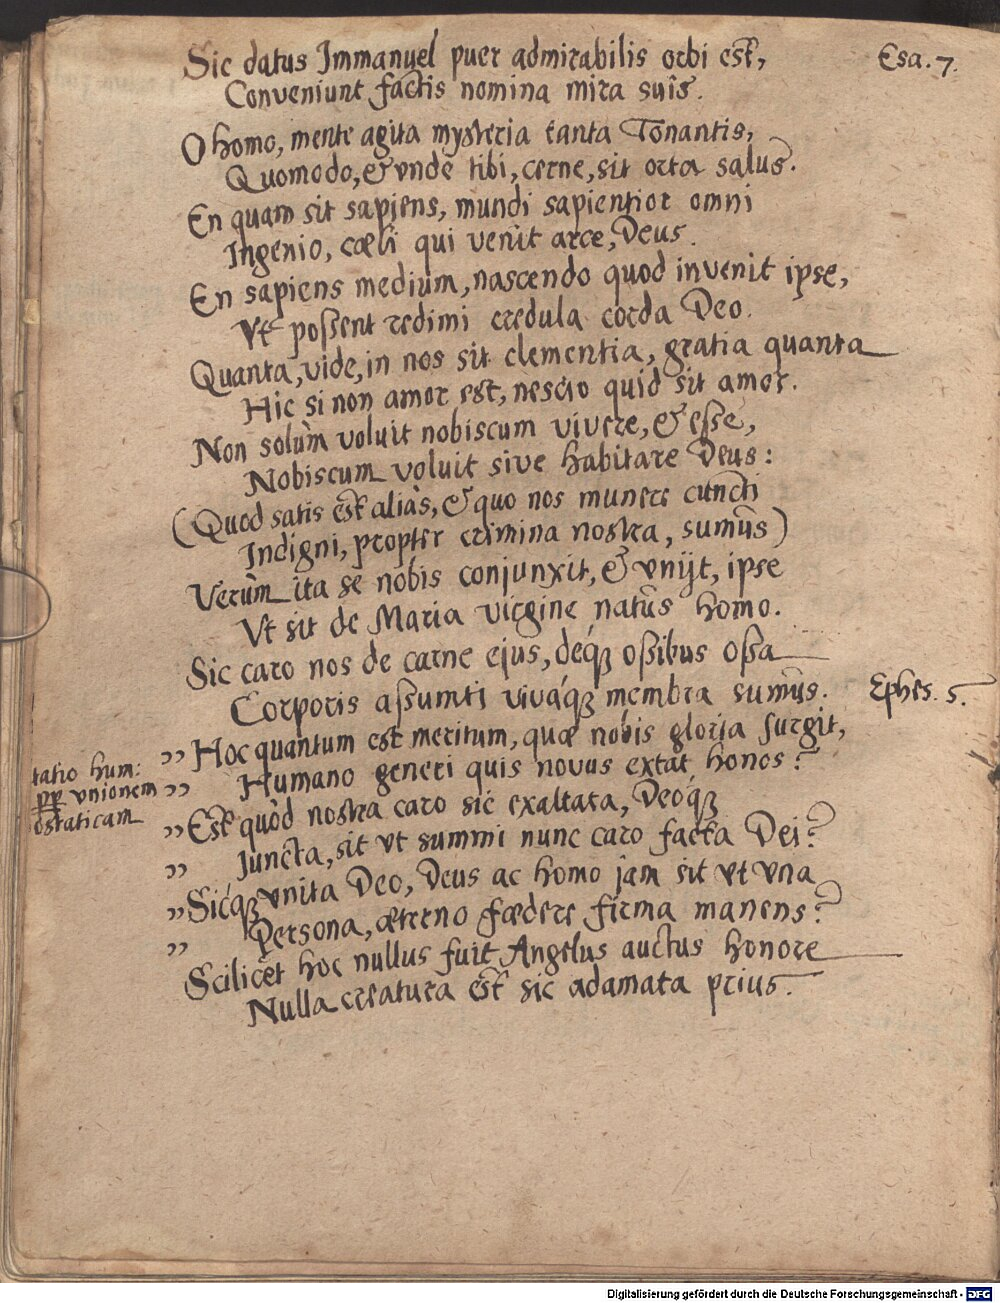 Sic datus Immanuel puer admirabilis orbi est,
Esa. 7.
Conveniunt factis nomina mira suis.
O homo, mente agita mysteria tanta Tonantis,
Quomodo, & vnde tibi, cerne, sit orta salus.
En quam sit sapiens, mundi sapientior omni
Ingenio, cœli qui venit arce, Deus.
En sapiens medium, nascendo quod invenit ipse,
Vt possent redimi credula corda Deo.
Quanta, vide, in nos sit clementia, gratia quanta
Hic si non amor est, nescio quid sit amor.
Non solùm voluit nobiscum vivere, & esse,
Nobiscum voluit sive habitare Deus:
(Quod satis est aliàs, & quo nos munere cuncti
Indigni, propter crimina nostra, sumus)
Verùm ita se nobis conjunxit, & vnijt, ipse
Vt sit de Maria virgine natus homo.
Sic caro nos de carne ejus, deq́ꝫ ossibus ossa
Corporis assumti vivaq́ꝫ membra sumus.
Ephes. 5.
„ Hoc quantum est meritum, quæ nobis gloria surgit,
„ Humano generi quis novus extat honos?
tatio hum:
ꝓꝑ vnionem
ostaticam
„ Est quòd nostra caro sic exaltata, Deoq́ꝫ
„ Juncta, sit vt summi nunc caro facta Dei?
„ Sicq́ꝫ vnita Deo, Deus ac homo jam sit vt vna
„ Persona, æterno fœdere firma manens?
Scilicet hoc nullus fuit Angelus auctus honore
Nulla creatura est sic adamata prius.
Digitalisierung gefördert durch die Deutsche Forschungsgemeinschaft - DFG